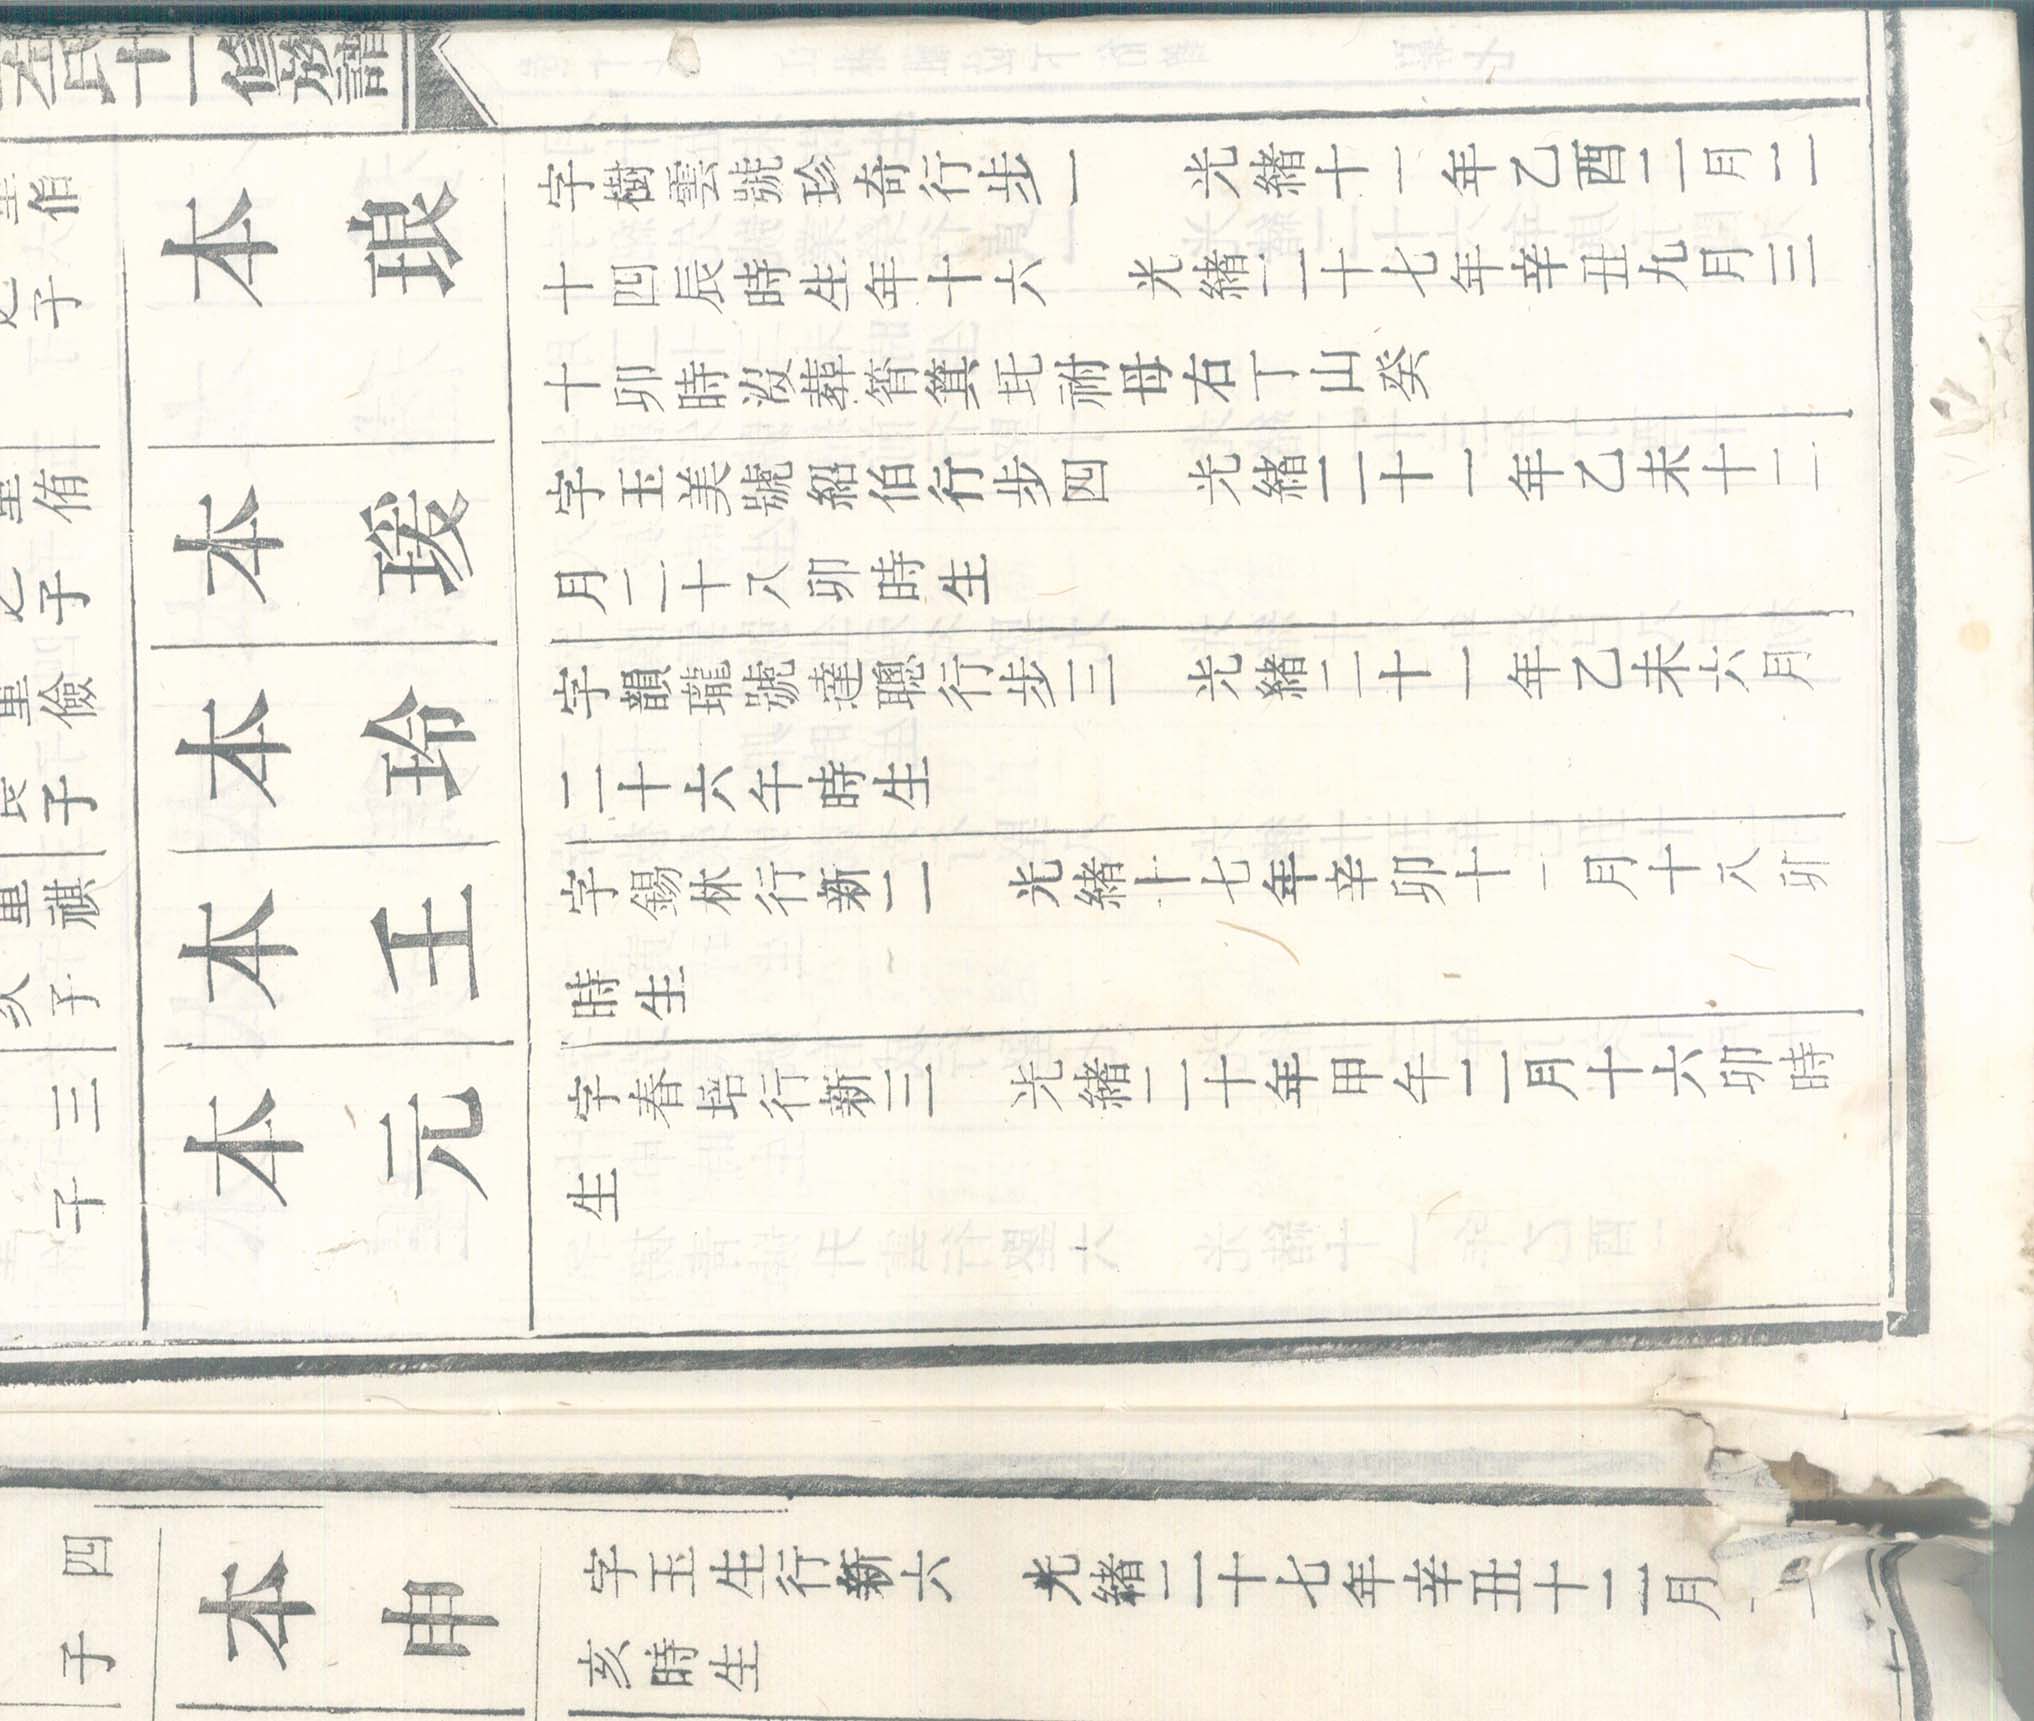 氏十一修族譜
伯
子
本琅
字樹雲號珍奇行步一 光緒十一年乙酉二月二
十四辰時生年十六 光緒二十七年辛丑九月三
十卯時沒葬筲箕坵祔母右丁山癸
侑
子
本瑗
字玉美號紹伯行步四 光緒二十一年乙未十二
月二十八卯時生
儉
長子
本玲
字韻瓏號達聰行步三 光緒二十一年乙未六月
二十六午時生
祺
次子
本王
字錫林行新二 光緒十七年辛卯十一月十八卯
時生
三
子
本元
字春培行新三 光緒二十年甲午二月十六卯時
生
四
子
本申
字玉生行新六 光緒二十七年辛丑十二月
亥時生